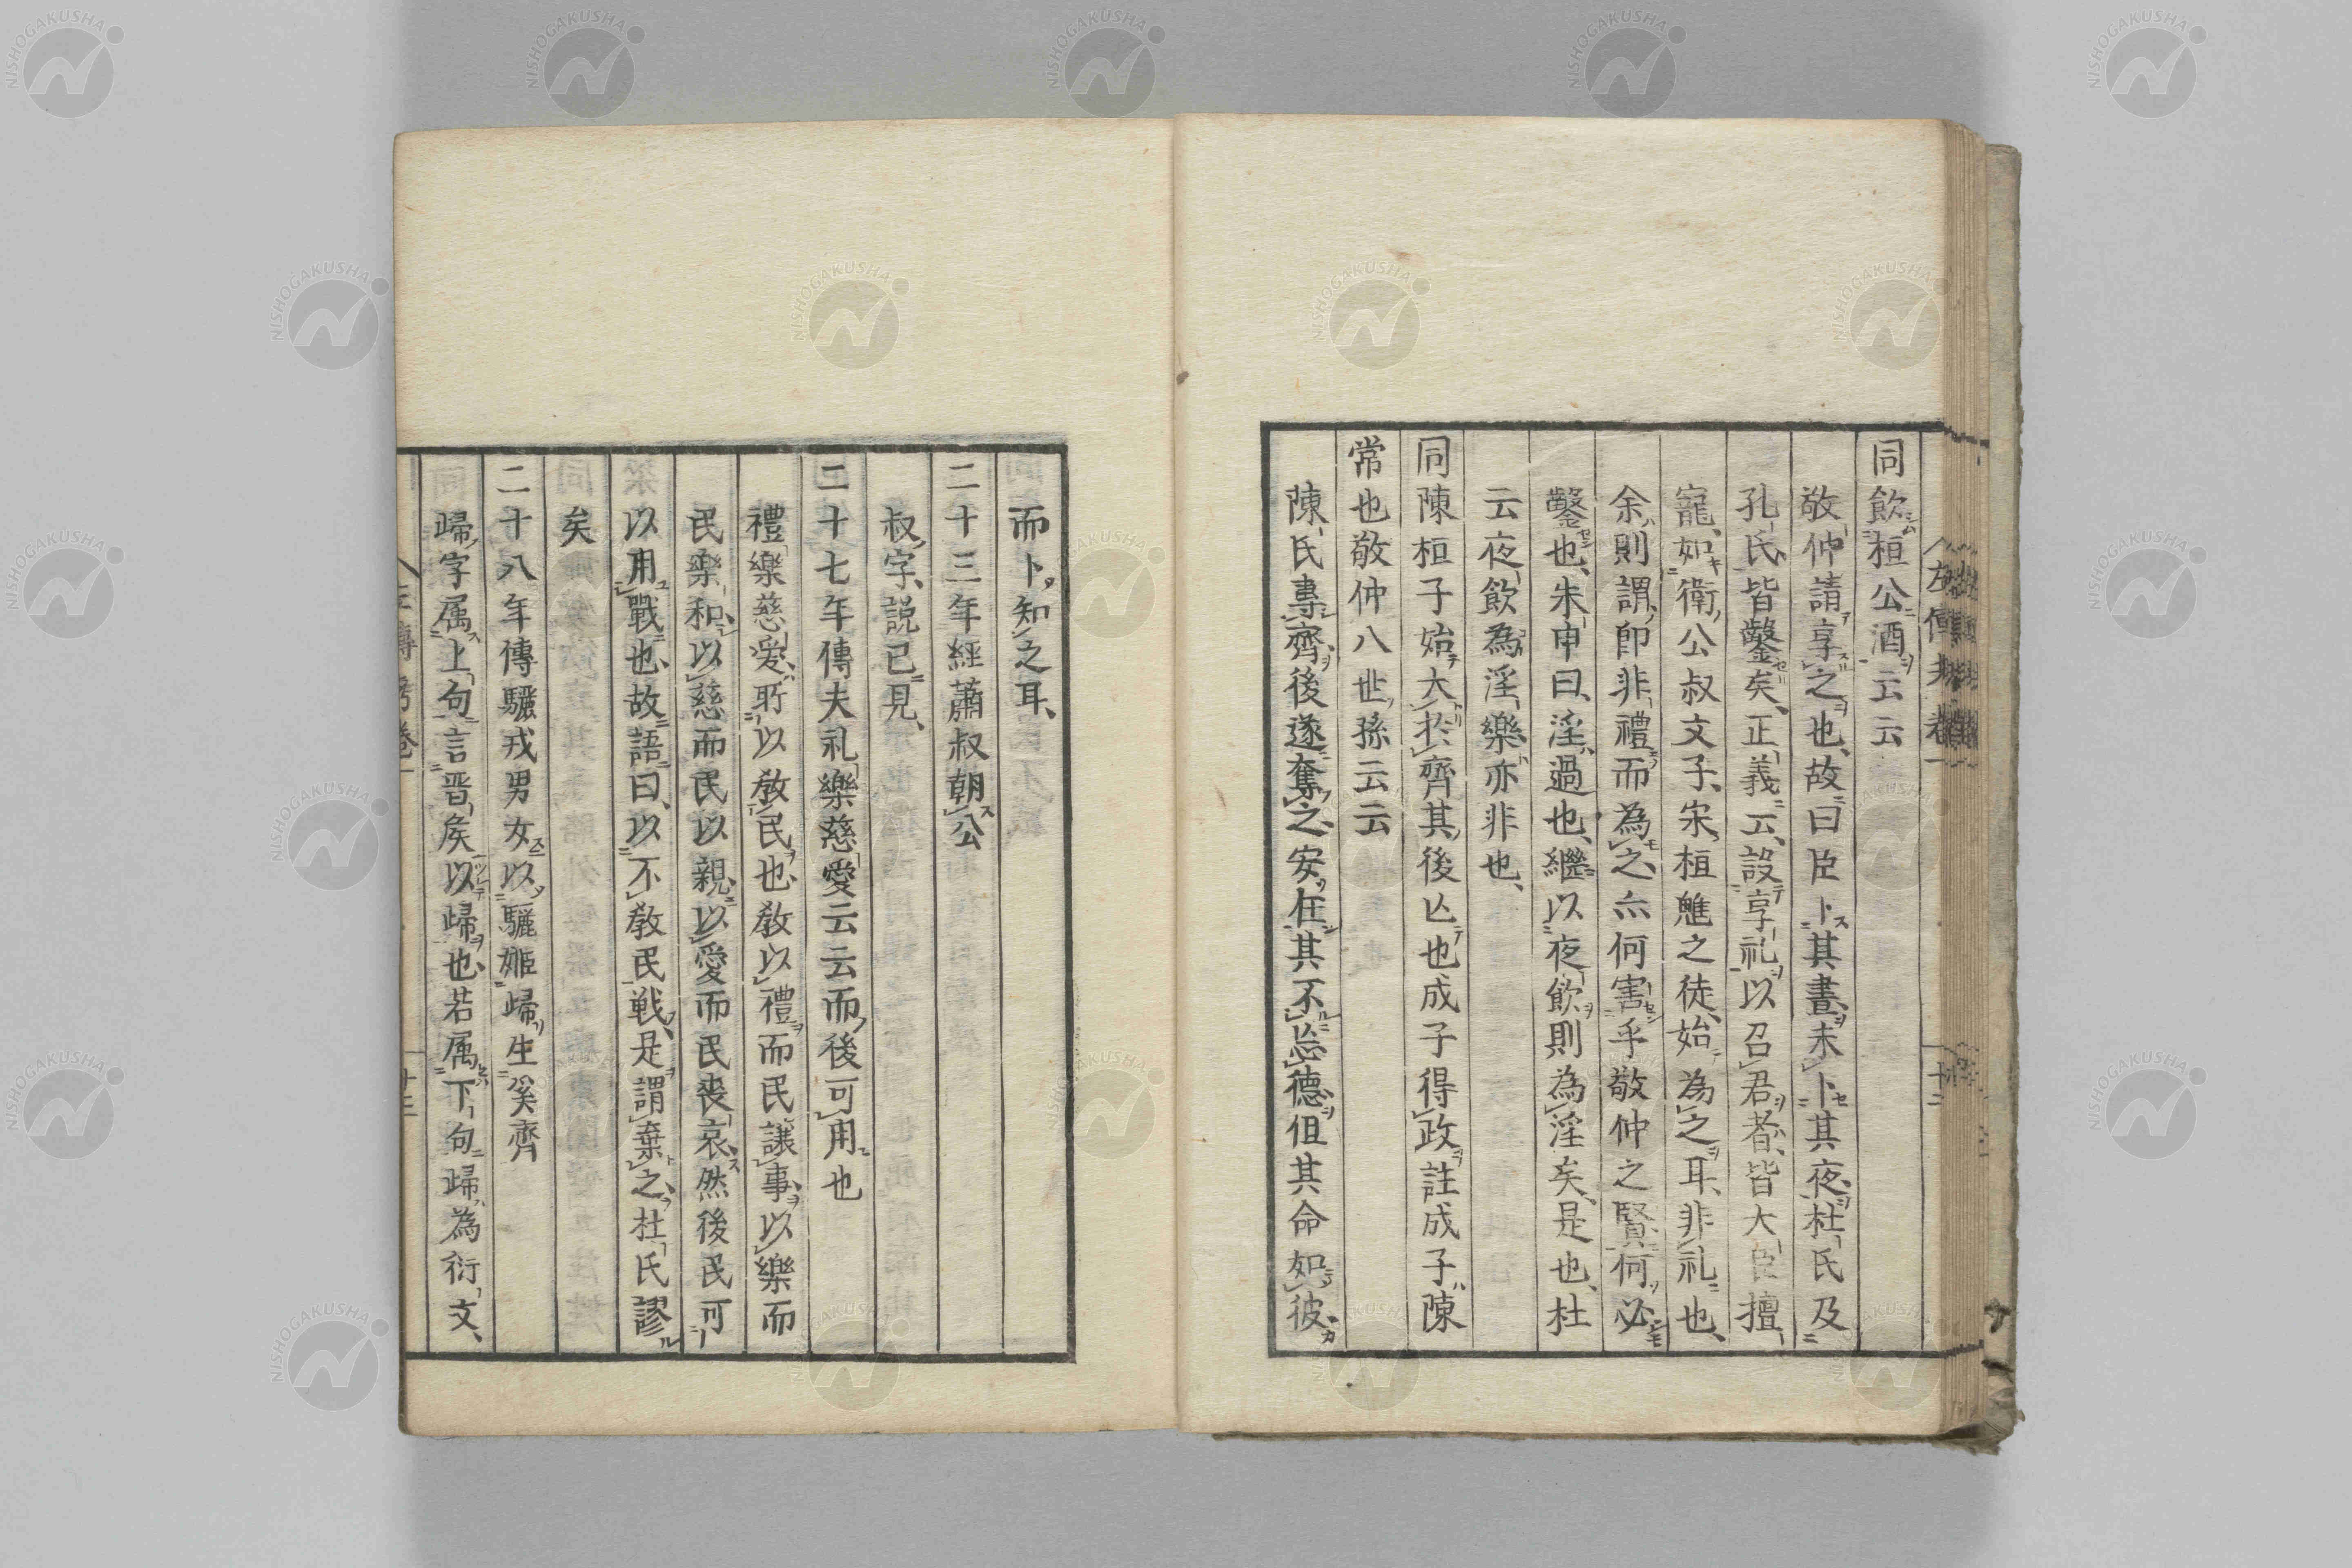 同飲桓公酒云云
敬仲請享之也、故曰臣卜其晝、未卜其夜、杜氏及
孔氏皆鑿矣、正義云、設享礼以召君者、皆大臣擅
寵、如衛公叔文子、宋桓魋之徒、始為之耳、非礼也、
余則謂、卽非禮而為之、亦何害乎敬仲之賢、何必
鑿也、朱申曰、淫、過也、繼以夜飲則為淫矣、是也、杜
云夜飲為淫樂、亦非也、
同陳桓子始大於齊其後亾也成子得政註成子陳
常也敬仲八世孫云云
陳氏專齊後遂奪之、安在其不忘德、但其命如彼、
而卜、知之耳、
二十三年經蕭叔朝公
叔字、説已見、
二十七年傳夫礼樂慈愛云云而後可用也
禮樂慈愛、所以教民也、教以禮而民讓事、以樂而
民樂和、以慈而民以親、以愛而民喪哀、然後民可
以用戰也、故語曰、以不教民戦、是謂棄之、杜氏謬
矣
二十八年傳驪戎男女以驪姬歸生奚齊
歸字属上句、言晋矦以歸也、若属下句、歸為衍文、
左傳考卷一
十二